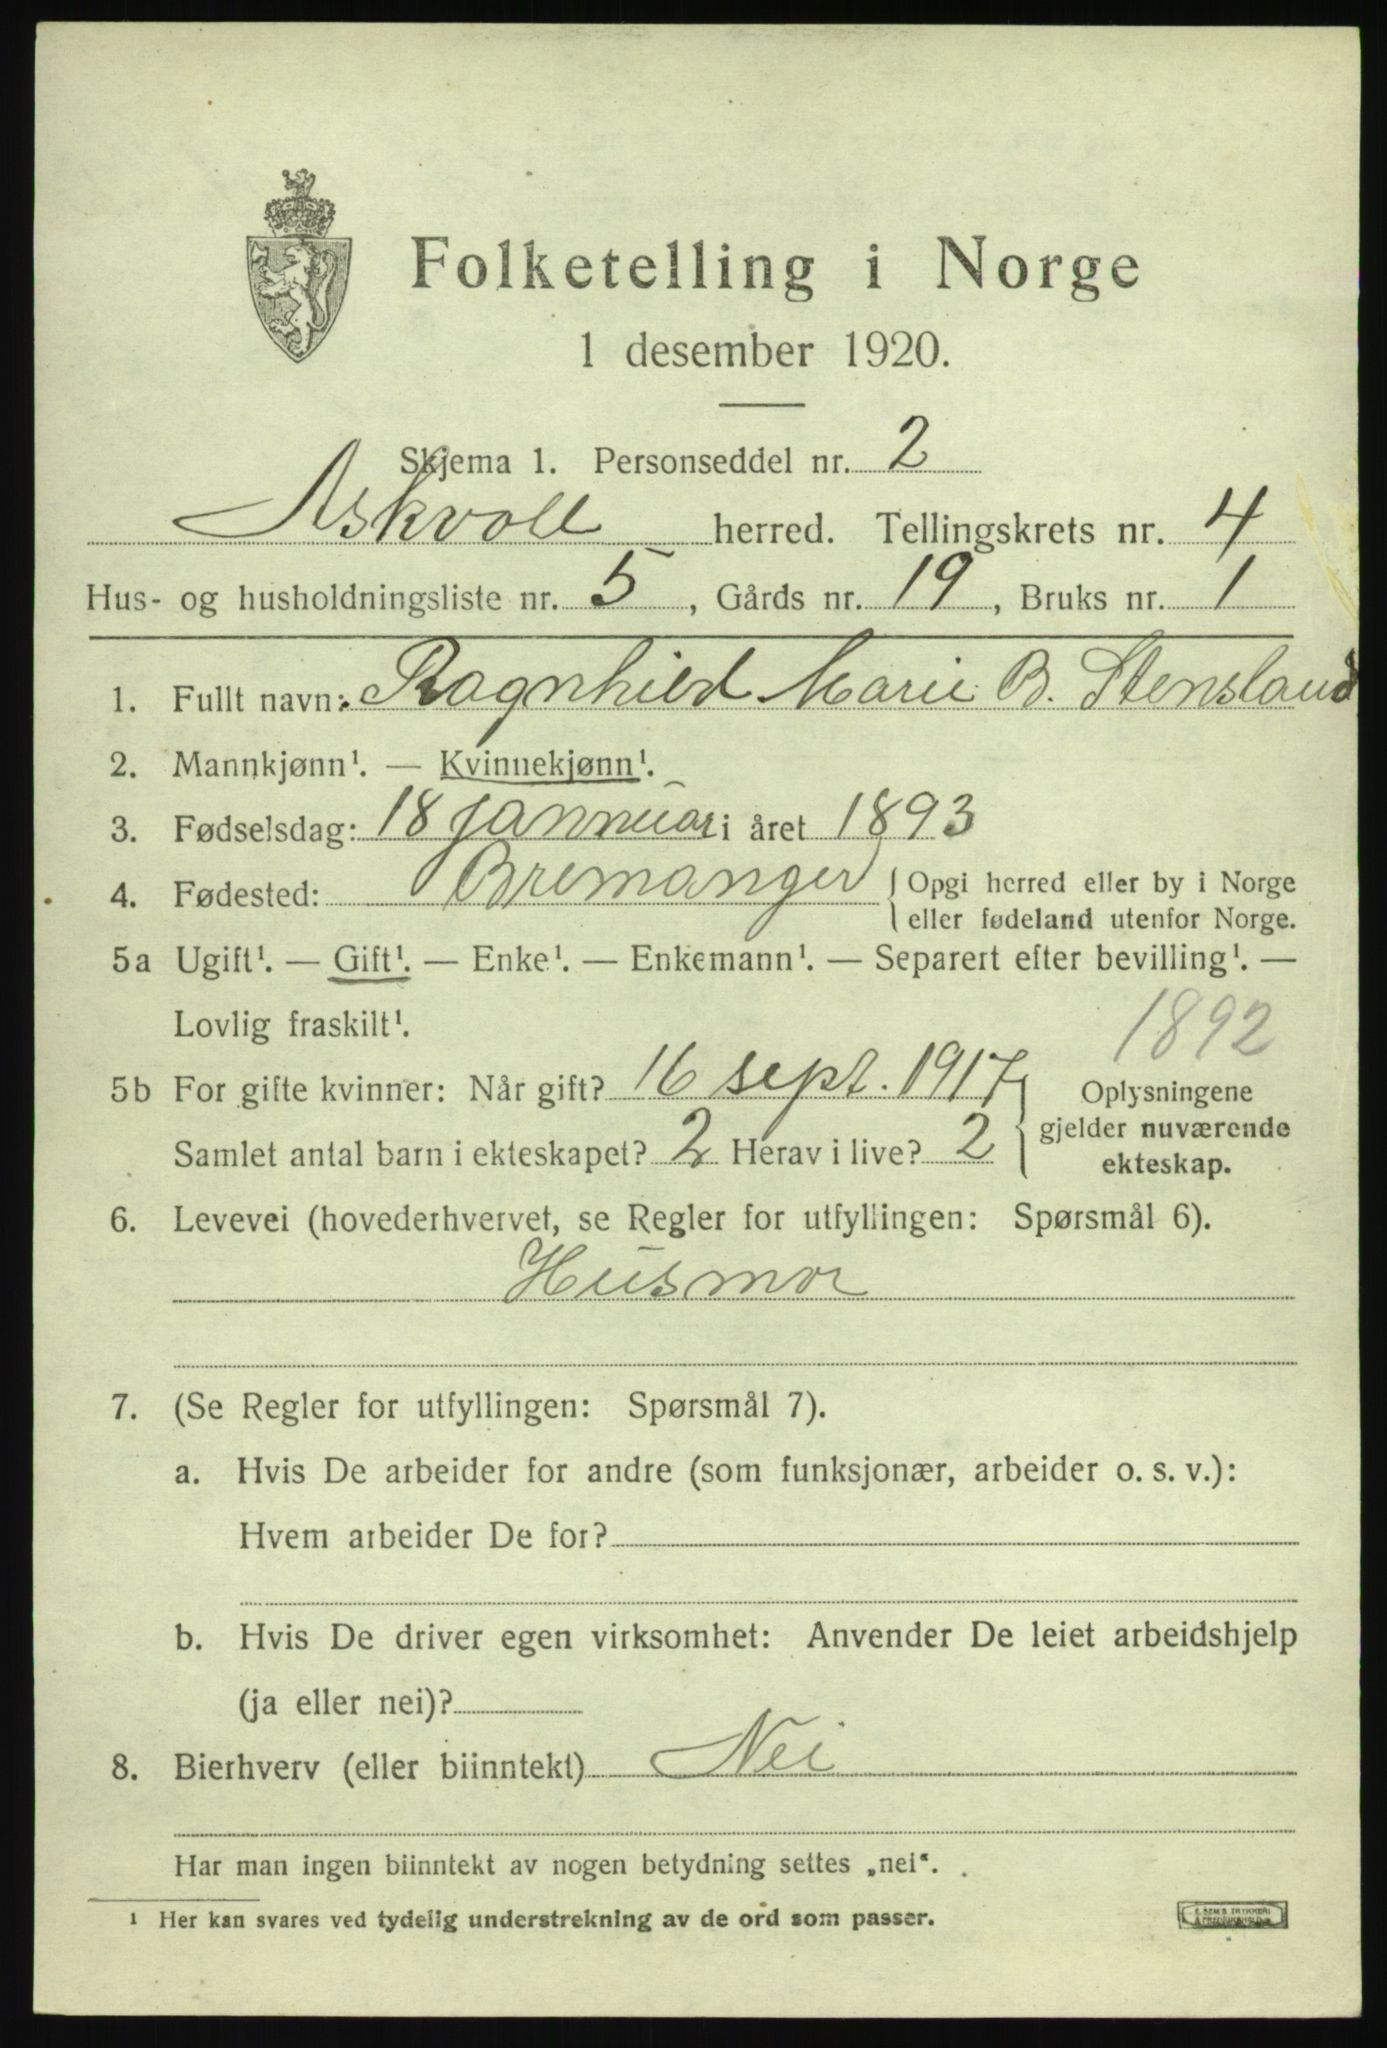 Folketelling i Norge
1 desember 1920.
Skjema 1. Personseddel nr. 2
Askvoll herred. Tellingskrets nr. 4
Hus- og husholdningsliste nr. 5, Gårds nr. 19, Bruks nr. 1
1. Fullt navn: Ragnhild Marie B. Stensland
2. Mannkjønn¹. — Kvinnekjønn¹.
3. Fødselsdag: 18 januar i året 1893
4. Fødested: Bremanger { Opgi herred eller by i Norge
eller fødeland utenfor Norge.
5a Ugift¹. — Gift¹. — Enke¹. — Enkemann¹. — Separert efter bevilling¹. —
Lovlig fraskilt¹.
1892
5b For gifte kvinner: Når gift? 16 sept. 1917
Samlet antal barn i ekteskapet? 2 Herav i live? 2
Oplysningene
gjelder nuværende
ekteskap.
6. Levevei (hovederhvervet, se Regler for utfyllingen: Spørsmål 6).
Husmor
7. (Se Regler for utfyllingen: Spørsmål 7).
a. Hvis De arbeider for andre (som funksjonær, arbeider o. s. v.):
Hvem arbeider De for?
b. Hvis De driver egen virksomhet: Anvender De leiet arbeidshjelp
(ja eller nei)?
8. Bierhverv (eller biinntekt) Nei
Har man ingen biinntekt av nogen betydning settes „nei“.
¹ Her kan svares ved tydelig understrekning av de ord som passer.